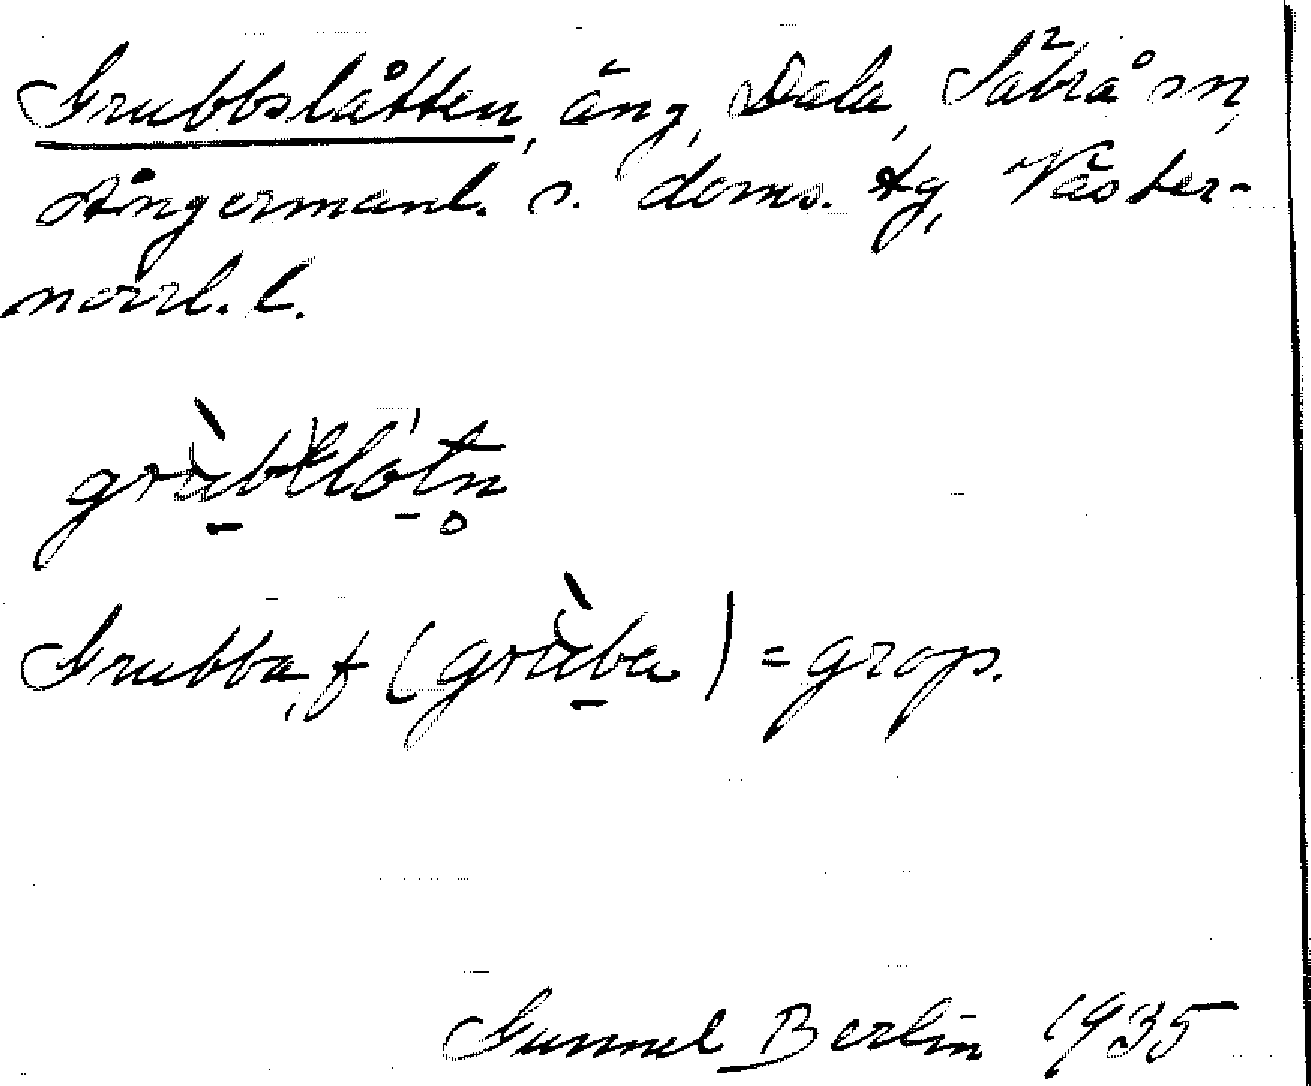 Grubbslåtten, äng, Dala, Säbrå sn,
Ångermanl. s. doms. tg, Väster-
norrl. l.
Grubba, f (grùba) = grop.
Gunnel Berlin 1935